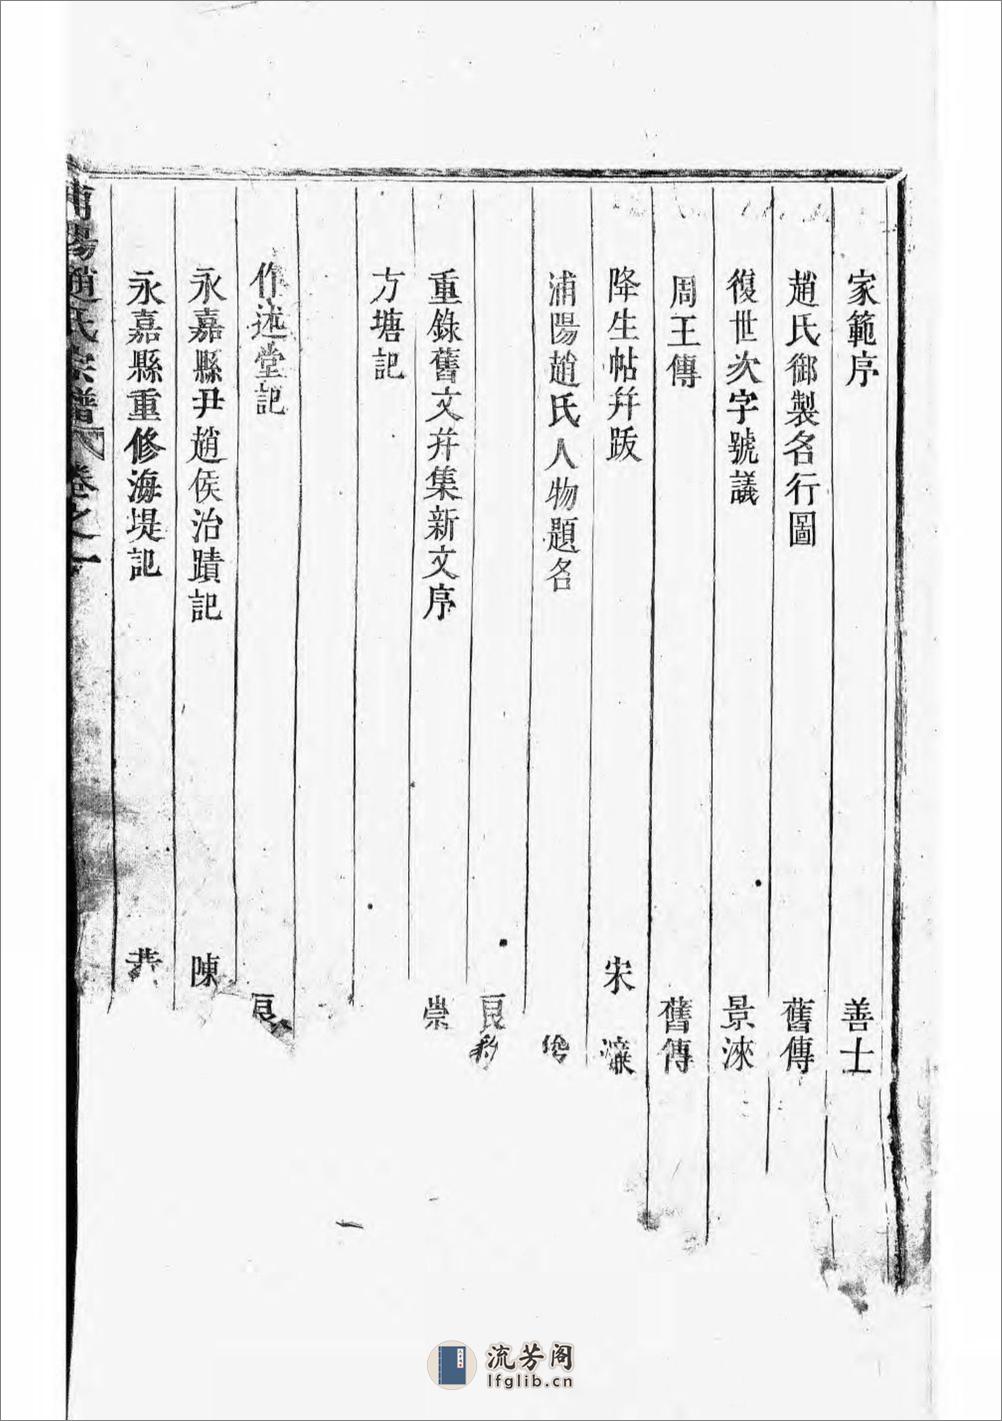 家範序 善士
趙氏御製名行圖 舊傳
復世次字號議 景淶
周王傳 舊傳
降生帖幷跋 宋濂
浦陽趙氏人物題名
良豹
重錄舊文幷集新文序 崇
方塘記
作述堂記 良
永嘉縣尹趙侯治蹟記 陳
永嘉縣重修海堤記
浦陽趙氏宗譜 卷之一
流芳阁
lfglib.cn